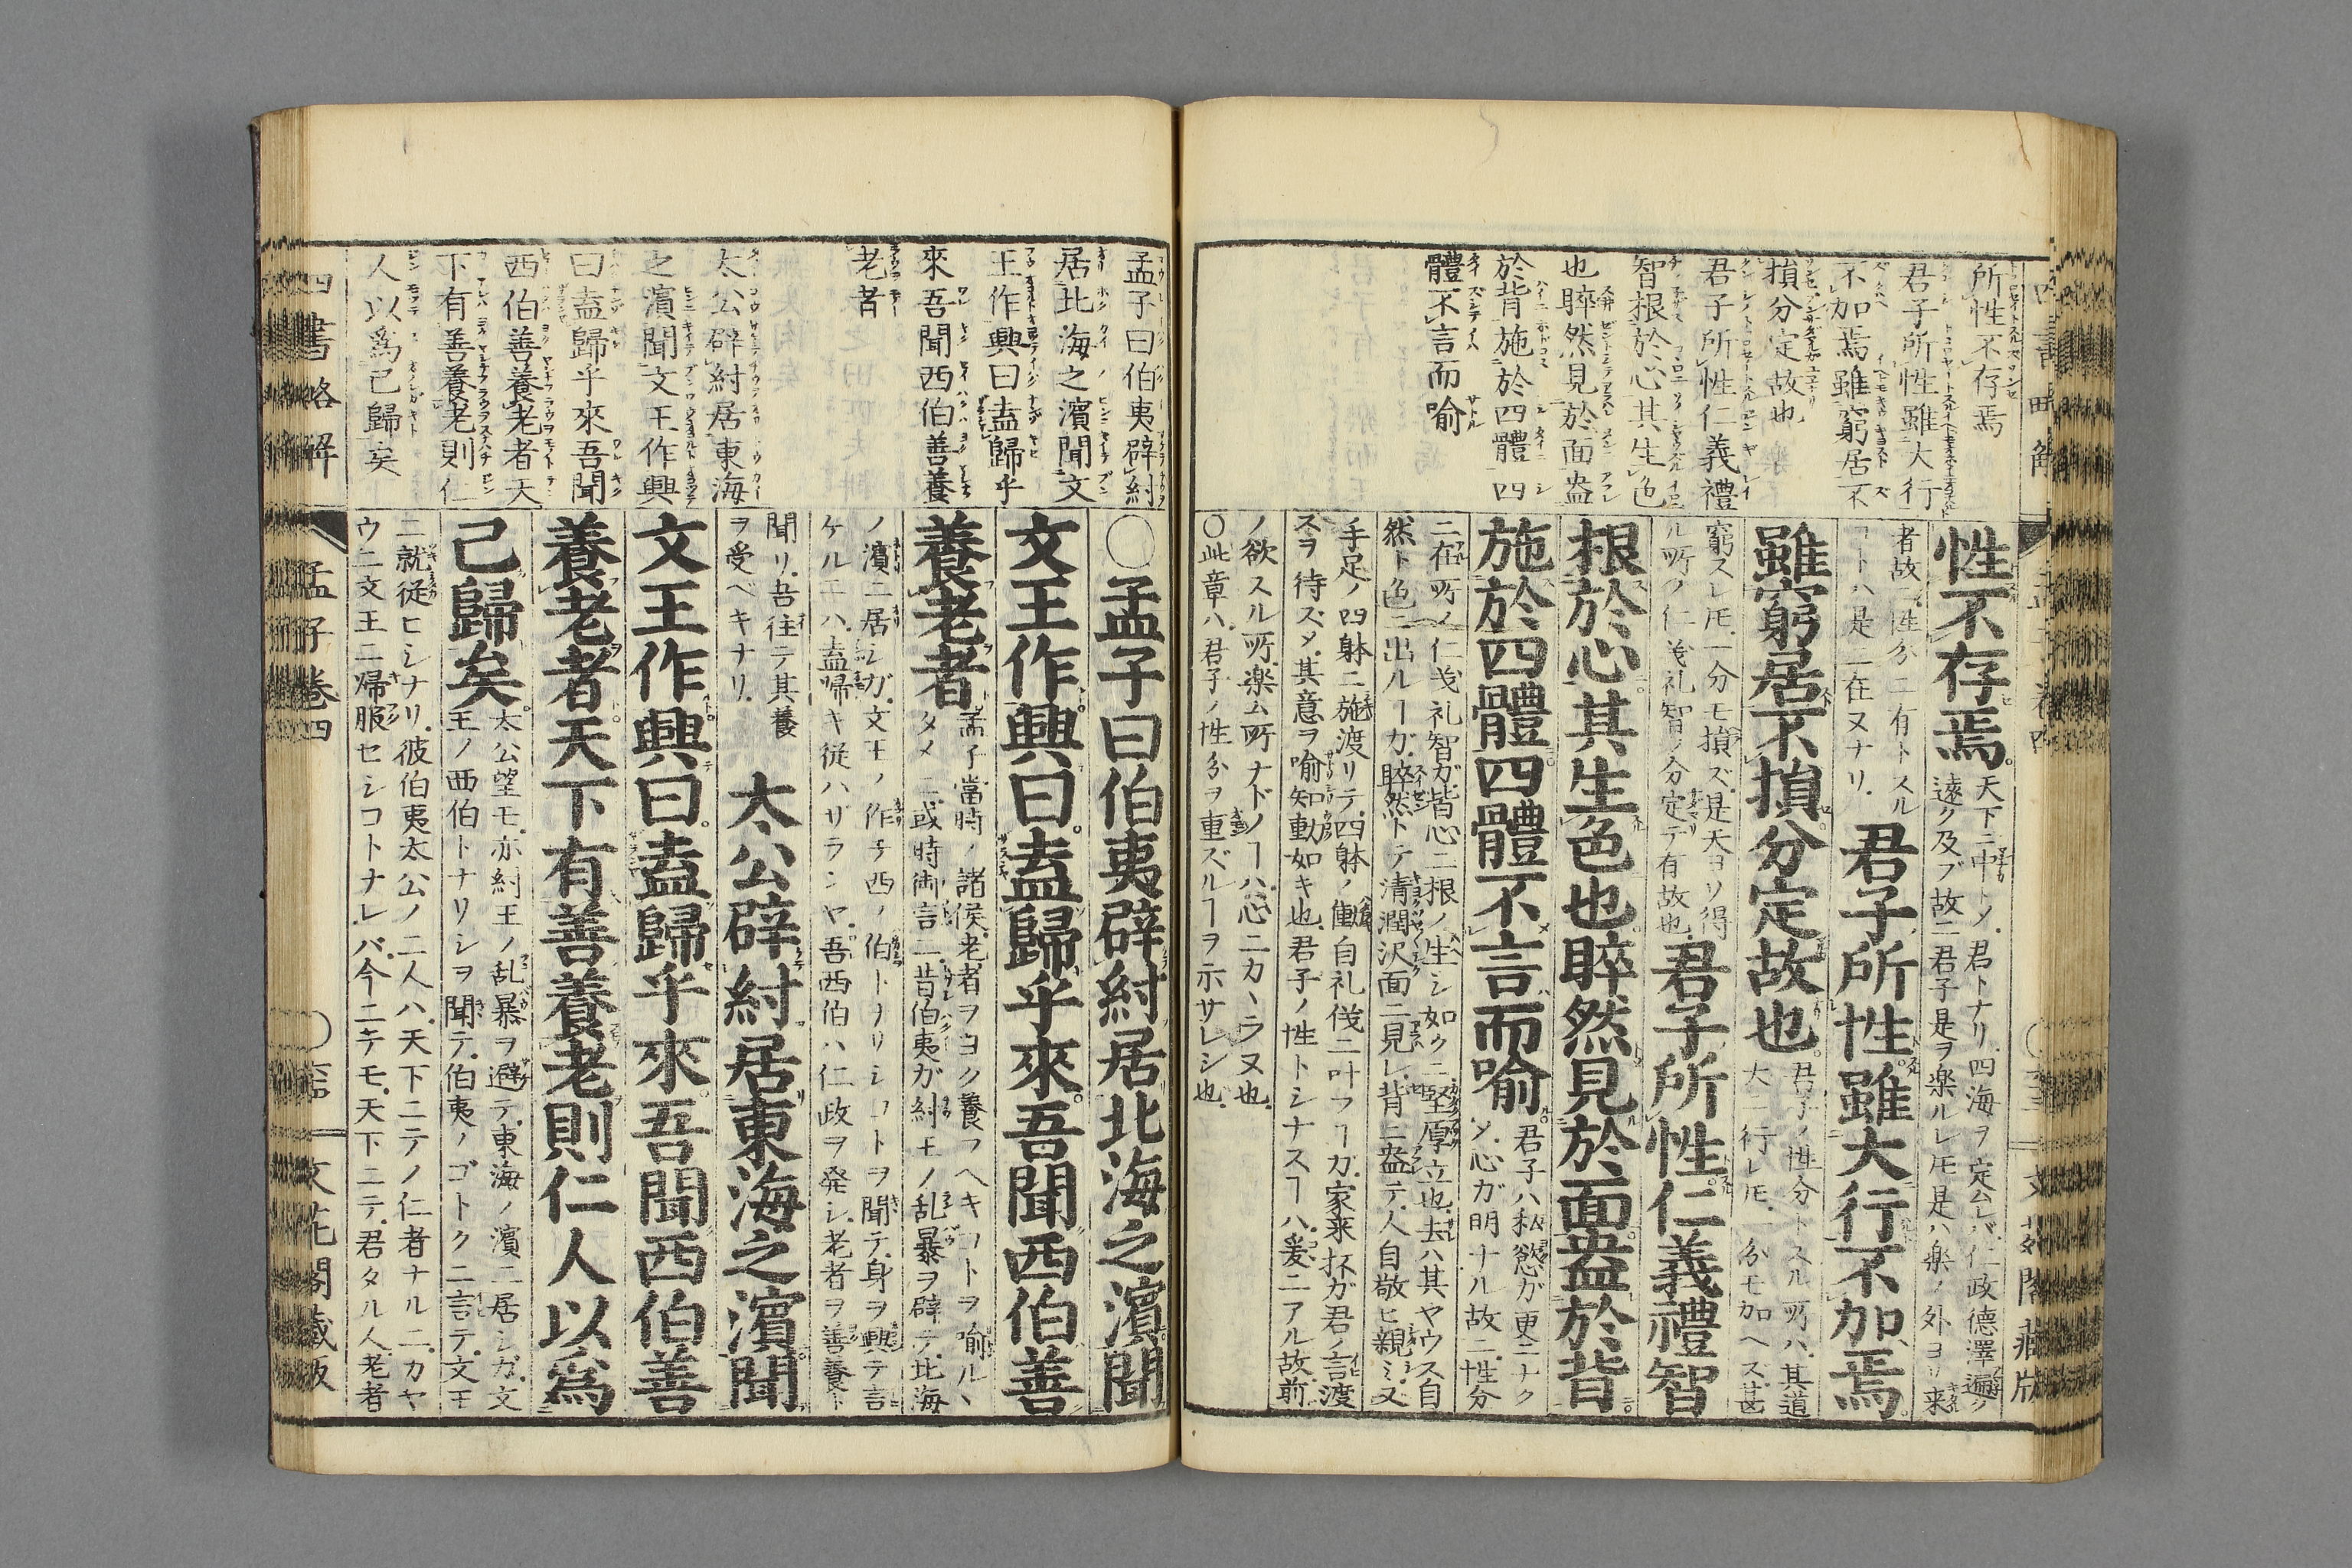 所性不存焉
君子所性雖大行
不加焉雖窮居不
損分定故也
君子所性仁義禮
智根於心其生色
也睟然見於面盎
於背施於四體四
體不言而喻
性不存焉。天下ニ中トメ君トナリ四海ヲ定ムレバ仁政德澤遍ク
遠ク及ブ故ニ君子是ヲ楽ルレ𪜈是ハ楽ノ外ヨリ来
者故ニ性分ニ有トスル
コトハ是ニ在ヌナリ
君子所性雖大行不加焉
雖窮居不損分定故也
君子ノ性分トスル所ハ其道
大ニ行レ𪜈一分モ加ヘズ甚
窮スレ𪜈一分モ損ズ是天ヨリ得
ル所ノ仁義礼智ノ分定テ有故也
君子所性仁義禮智
根於心其生色也睟然見於面盎於背
施於四體四體不言而喻
君子ハ私慾ガ更ニナク
メ心ガ明ナル故ニ性分
ニ在所ノ仁義礼智ガ皆心ニ根ノ生シ如クニ堅厚立也去ハ其ヤウス自
然ト色ニ出ルヿガ睟然トテ清潤沢面ニ見レ背ニ盎テ人自敬ヒ親ミ又
手足ノ四躰ニ施渡リテ四躰ノ働自礼伐ニ叶フヿガ家来抔ガ君ノ言渡
スヲ待ズメ其意ヲ喻知動如キ也君子ノ性トシナスヿハ爰ニアル故前
ノ欲スル所楽ム所ナドノヿハ心ニカヽラヌ也
〇此章ハ君子ノ性分ヲ重ズルヿヲ示サレシ也
孟子曰伯夷辟紂
居北海之濱聞文
王作興曰盍歸乎
來吾聞西伯善養
老者
太公辟紂居東海
之濱聞文王作興
曰盍歸乎來吾聞
西伯善養老者天
下有善養老則仁
人以爲己歸矣
〇孟子曰伯夷辟紂居北海之濱聞
文王作興曰盍歸乎來吾聞西伯善
養老者
孟子當時ノ諸侯老者ヲヨク養フヘキコトヲ喻ルヽ
タメニ或時御言ニ昔伯夷ガ紂王ノ乱暴ヲ辟テ北海
ノ濱ニ居シガ文王ノ作テ西ノ伯トナリシコトヲ聞テ身ヲ興テ言
ケルニハ盍歸キ從ハザランヤ吾西伯ハ仁政ヲ発シ老者ヲ善養ト
聞リ吾往テ其養
ヲ受ベキナリ
太公辟紂居東海之濱聞
文王作興曰盍歸乎來吾聞西伯善
養老者天下有善養老則仁人以爲
己歸矣
太公望モ亦紂王ノ乱暴ヲ避テ東海ノ濱ニ居シガ文
王ノ西伯トナリシヲ聞テ伯夷ノゴトクニ言テ文王
ニ就從ヒシナリ彼伯夷太公ノ二人ハ天下ニテノ仁者ナルニカヤ
ウニ文王ニ帰服セシコトナレバ今ニテモ天下ニテ君タル人老者
四書略解
孟子卷四
文花閣藏版